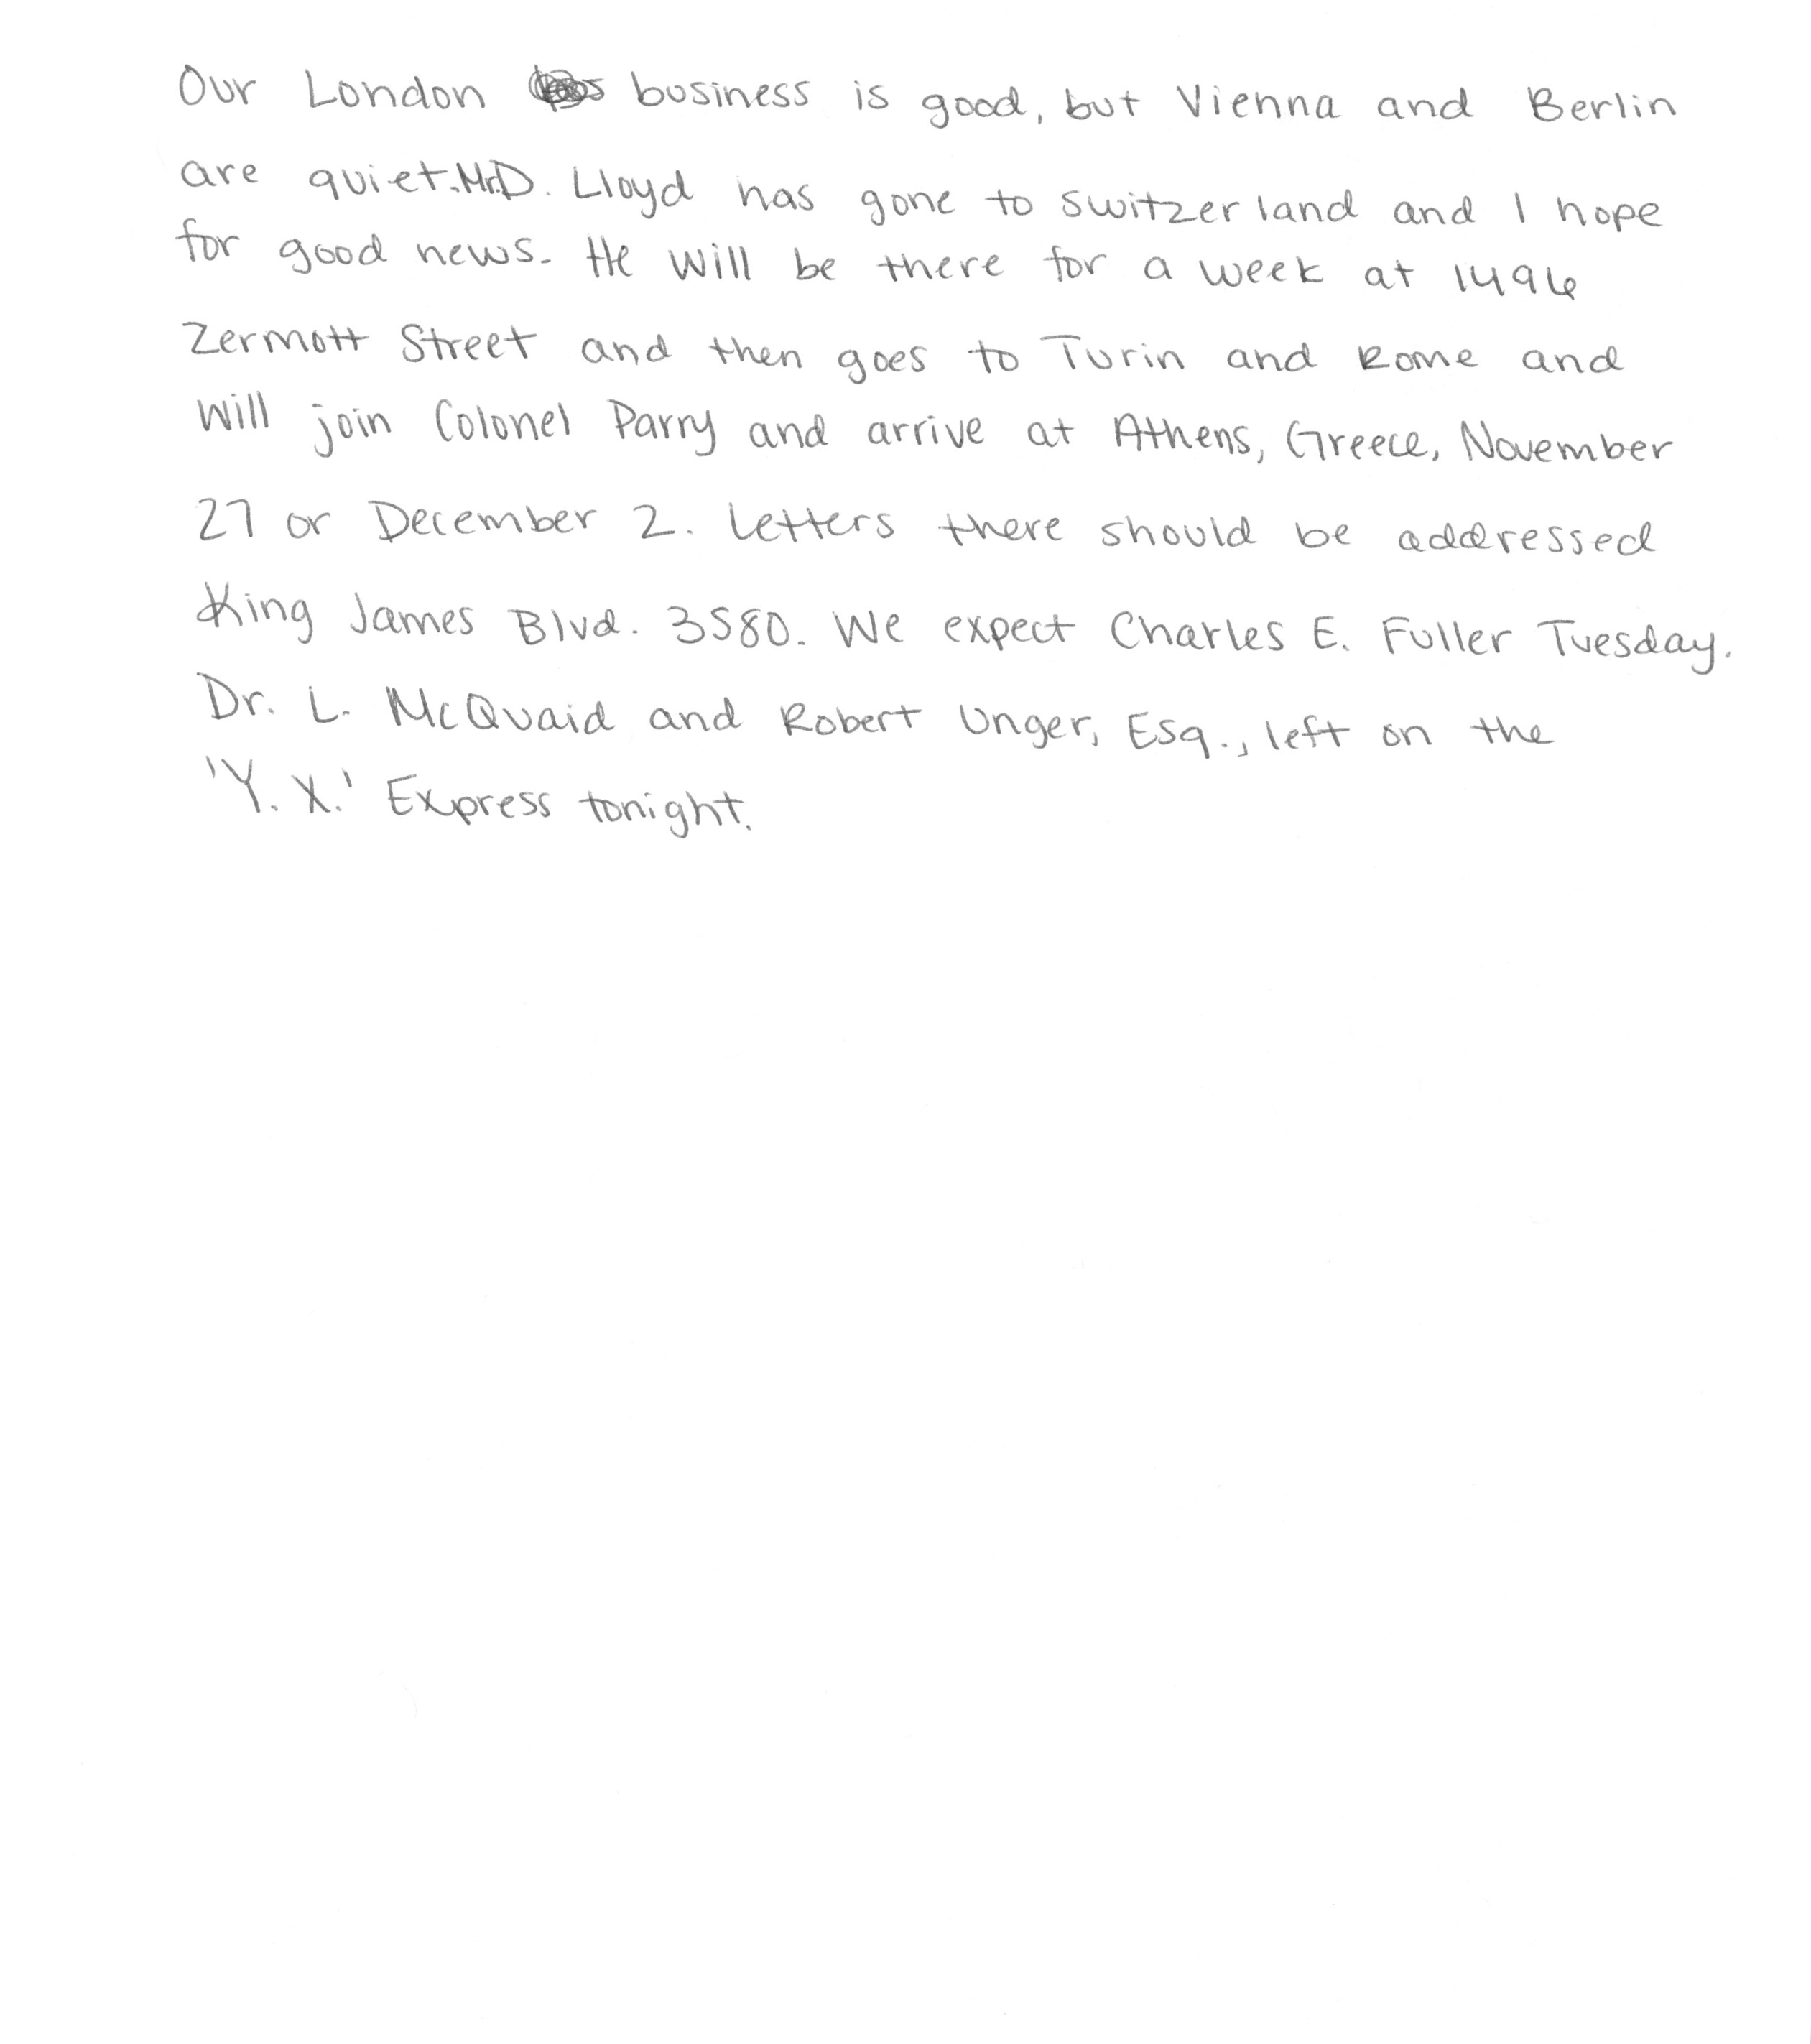 Our London business is good, but Vienna and Berlin
are quiet. Mr. D. Lloyd has gone to Switzerland and I hope
for good news. He will be there for a week at 1496
Zermott Street and then goes to Turin and Rome and
will join Colonel Parry and arrive at Athens, Greece, November
27 or December 2. Letters there should be addressed
King James Blvd. 3580. We expect Charles E. Fuller Tuesday.
Dr. L. McQuaid and Robert Unger, Esq., left on the
'Y. X.' Express tonight.